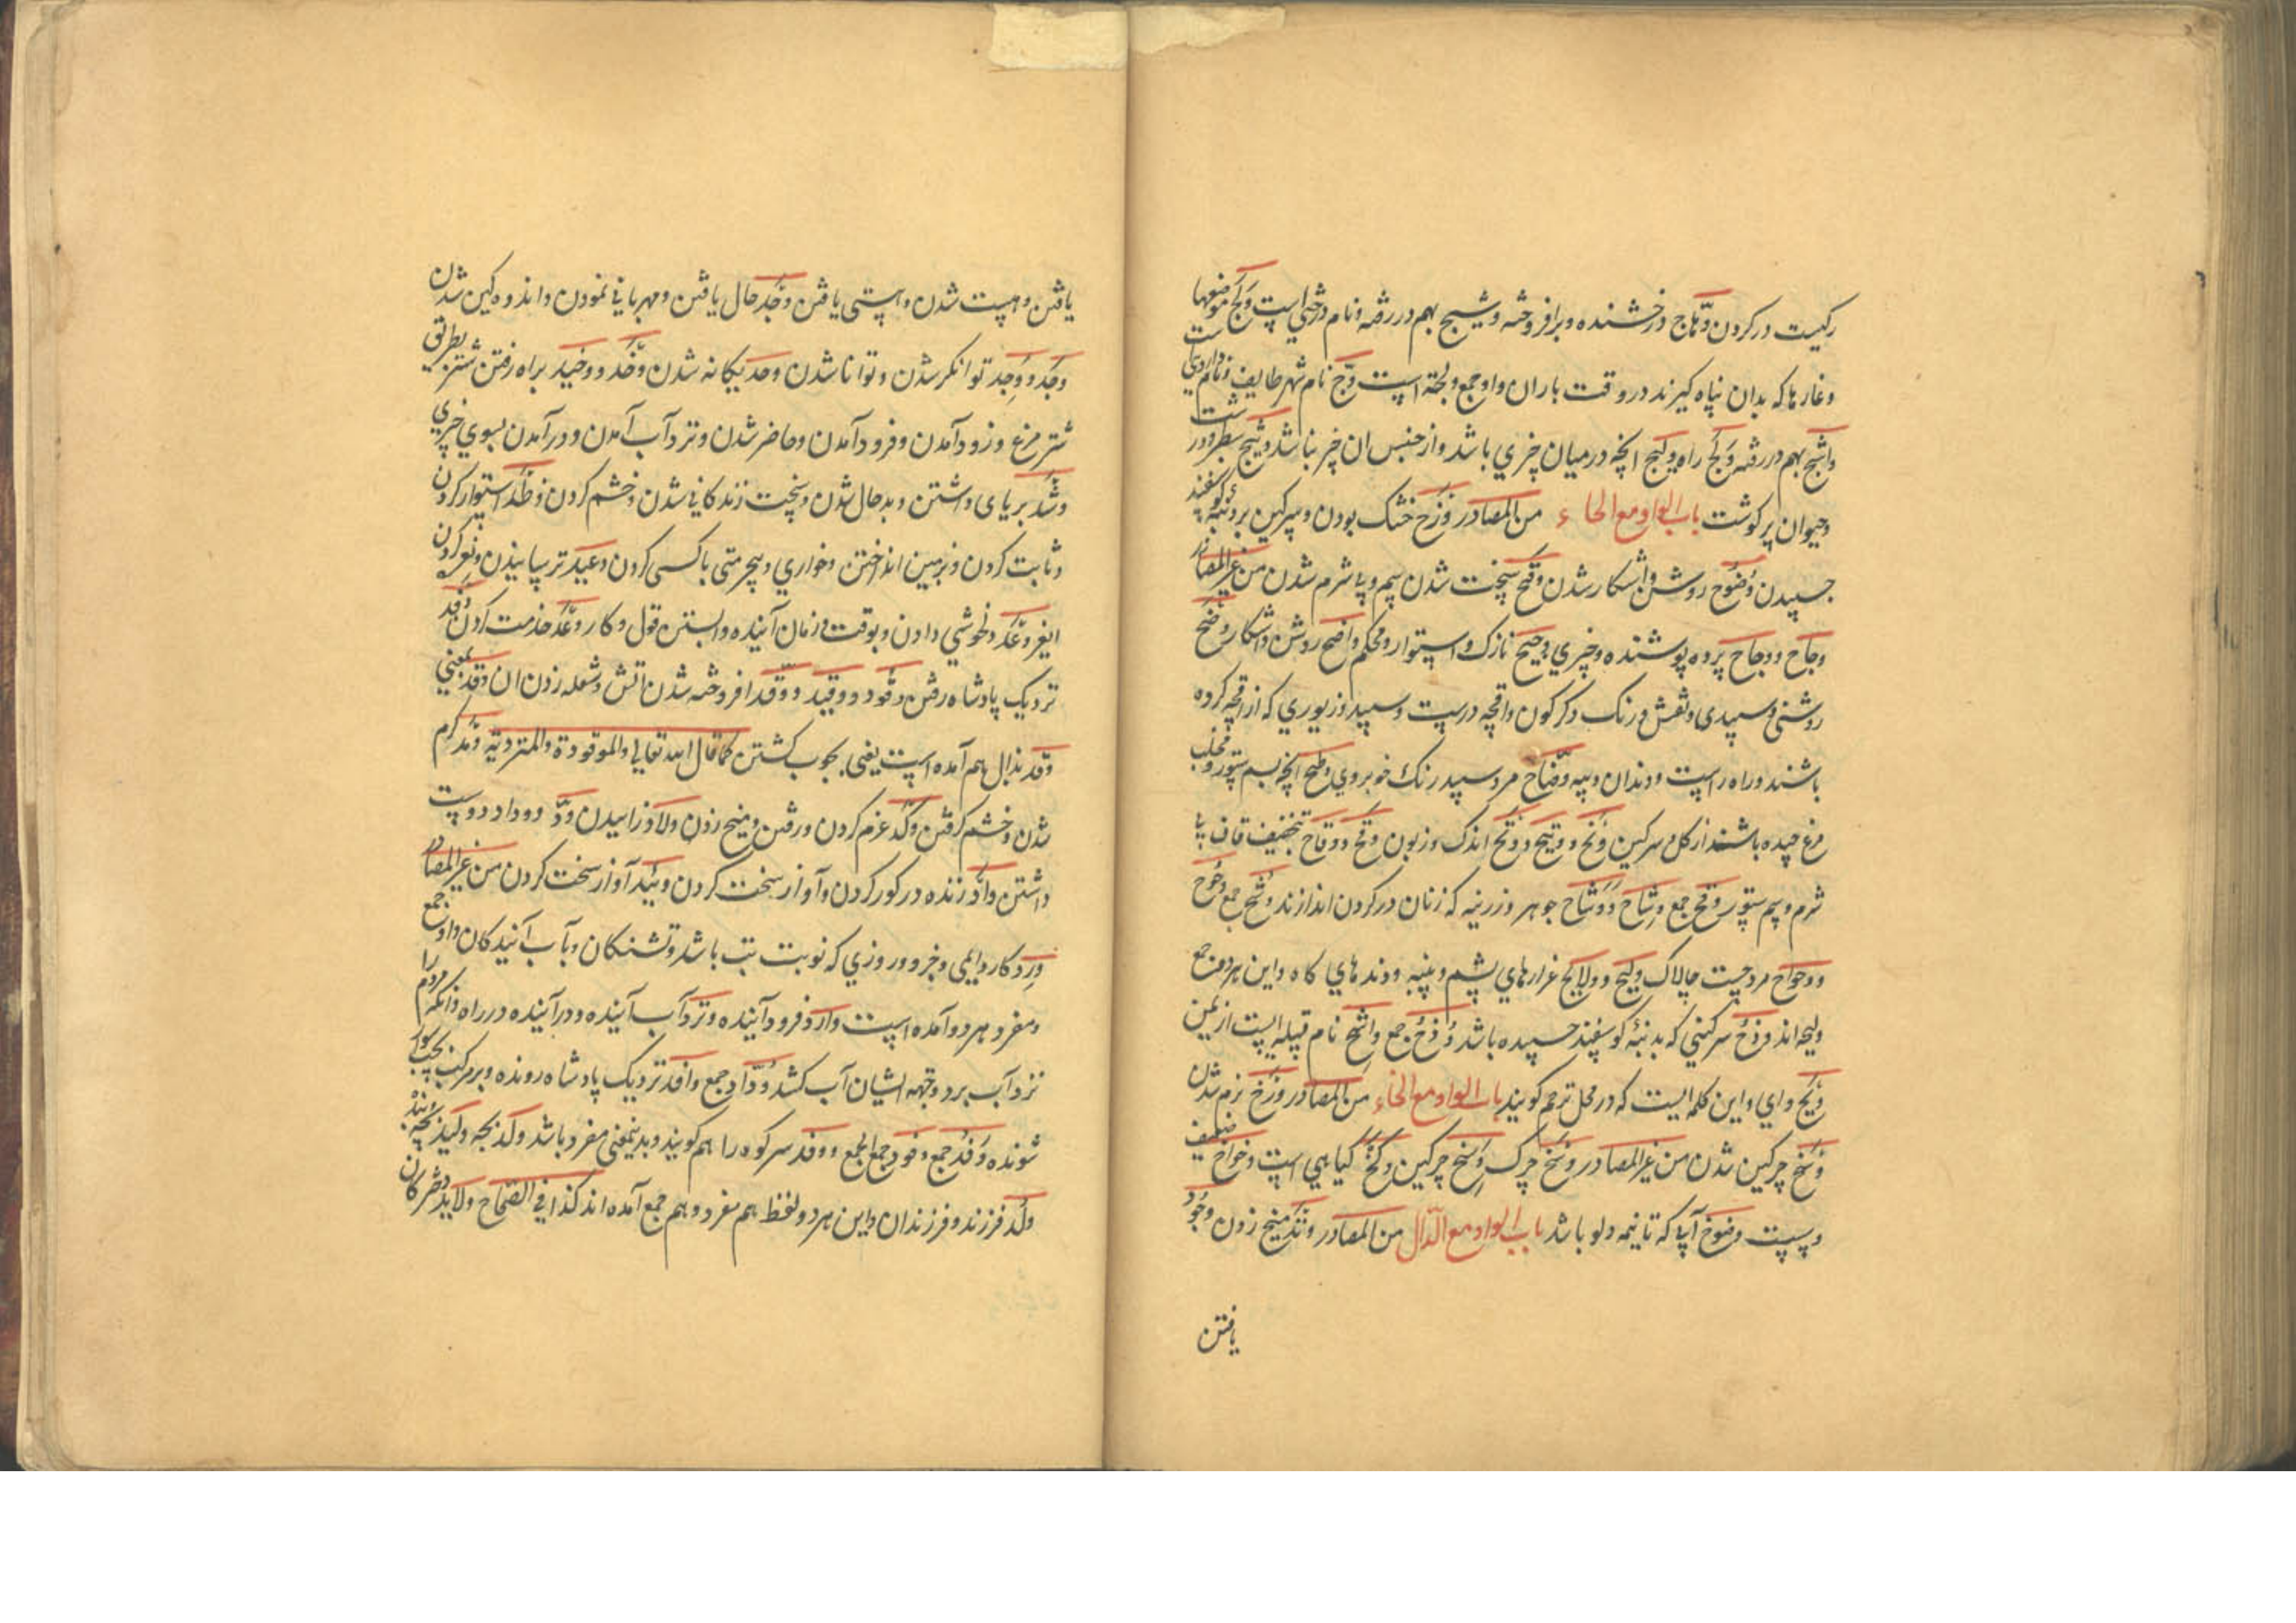 ركیت در كردن وهّاج درخشنده و برافروخته وشیج بهم دررفته و نام درختی است ولج موضعها
و غارها كه بدان پناه گیرند در وقت باران و او جمع ولجة است وجّ نام شهر طایف و نام داروی است
واشج بهم دررفته ولج راه ولیج انچه در میان چیزی باشد و از جنس ان چیز نباشد وثیج سطبر و درشت
و حیوان پر گوشت باب الواو مع الحاء من المصادر وذح خشك بودن و سرگین بر دنبهٔ گوسفند
چسپیدن وضوح روشن و آشكار شدن وقح سخت شدن سم و بی شرم شدن من غیر المصادر
وجاح و وجاح پرده پوشنده و چیزی وجیح نازك و استوار و محكم واضح روشن و آشكار وضح
روشنی و سپیدی و نقش و رنگ دگرگون و اقچه درست و سپید و زیوری كه از اقچه كرده
باشند و راه راست و دندان و پیه وضّاح مرد سپید رنگ خوبروی وطح انچه بسم ستور و مخلب
مرغ چپده باشند از گل و سرگین وتح و وتیح و وتح اندك و زبون وقح و وقاح بتخفیف قاف بی
شرم و سم ستور وقح جمع وشاح و وشاح جوهر و زرینه كه زنان در گردن اندازند وشح جمع وحوح
و وحواح مرد چست چالاك ولیح و ولایح غرارهای پشم و پنبه و دندهای كاه و این هر دو جمع
ولیحه اند وذح سرگینی كه بدنبهٔ گوسفند چسپیده باشد وذح جمع واشح نام قبیله ایست از یمن
ویح وای و این كلمه ایست كه در محل ترحم گویند باب الواو مع الخاء من المصادر ورخ نرم شدن
وسخ چركین شدن من غیر المصادر وسخ چرك وسخ چركین و گیاهی است وخواخ ضعیف
و سست وضوخ آبیا كه تا نیمه دلو باشد باب الواو مع الدّال من المصادر وتد میخ زدن وجود
یافتن
یافتن و هست شدن و هستی یافتن وجد حال یافتن و مهربانی نمودن و اندوه گین شدن
وجد و وجد توانگر شدن و توانا شدن وحد یگانه شدن وخد و وخید براه رفتن شتر بطریق
شتر مرغ و زود آمدن و فرود آمدن و حاضر شدن و نزد آب آمدن و درآمدن بسوی چیزی
وشد برپای داشتن و بدحال شدن و سخت زندگانی شدن و خشم كردن وطد استوار كردن
و ثابت كردن و بزمین انداختن و خواری و بیحرمتی با كسی كردن وعید ترسانیدن و نعره كردن
وعد و خوشی دادن و بوقت و زمان آینده وابستن قول و كار وغد خدمت كردن وفد
نزدیك پادشاه رفتن وقود و وقید و وقد افروخته شدن اتش و شعله زدن ان وقد بمعنی
وقذ بذال هم آمده است یعنی بچوب كشتن كما قال الله تعالی والموقوذة والمتردیة ومد گرم
شدن و خشم گرفتن وكد عزم كردن و رفتن و میخ زدن ولاد زاییدن ودّ و وداد دوست
داشتن وأد زنده در گور كردن و آواز سخت كردن وئید آواز سخت كردن من غیر المصادر
ورد كار دایمی و جزو و روزی كه نوبت تب باشد و تشنگان و بآب آیندگان و او جمع
و مفرد هر دو آمده است وارد فرود آینده و نزد آب آینده و درآینده در راه و آنكه مردم را
نزد آب برد و بجهه ایشان آب كشد ورّاد جمع وافد نزدیك پادشاه رونده و بر مركب سوار
شونده وفد جمع وفود جمع الجمع و وفد سر كوه را هم گویند و بدینمعنی مفرد باشد ولد بچه ولید بچه بنده
ولد فرزند و فرزندان و این هر دو لفظ هم مفرد و هم جمع آمده اند كذا فی الصّحاح ولاید دختركان